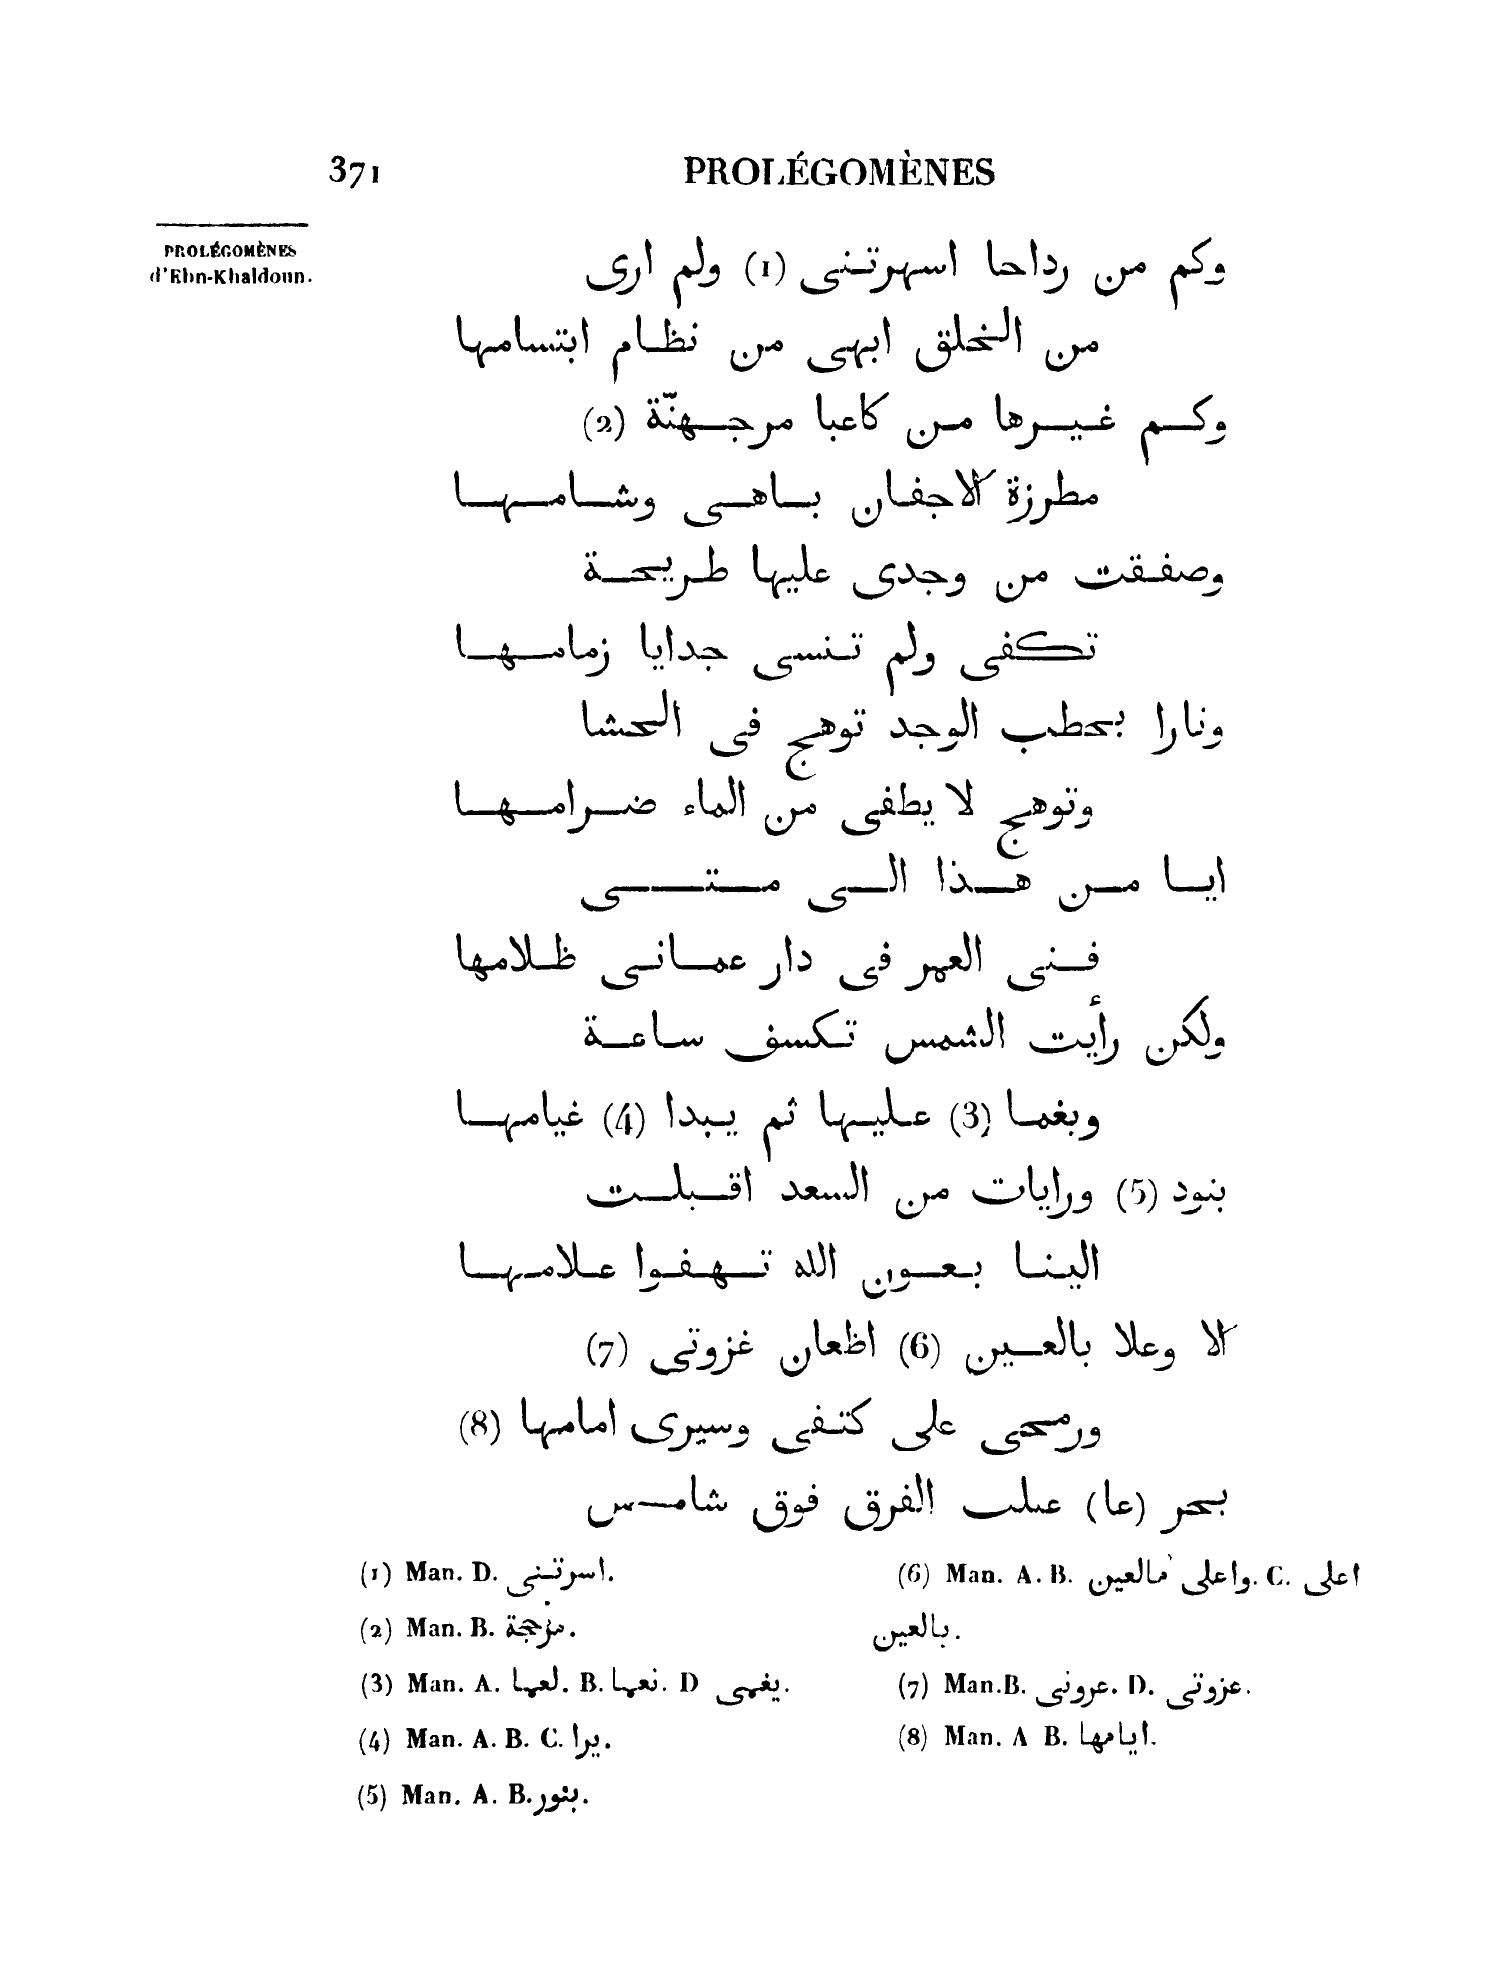 371 PROLÉGOMÈNES
PROLÉGOMÈNES
d'Ebn-Khaldoun.
وكم من رداحا اسهرتنى (1) ولم ارى
من الخلق ابهى من نظام ابتسامها
وكم غيرها من كاعبا مرجهنّة (2)
مطرزة الاجفان باهى وشامها
وصفقت من وجدى عليها طريحة
تكفى ولم تنسى جدايا زمامها
ونارا بحطب الوجد توهج فى الحشا
وتوهج لا يطفى من الماء ضرامها
ايا من هذا الى متى
فنى العمر فى دار عمانى ظلامها
ولكن رأيت الشمس تكسف ساعة
وبغما (3) عليها ثم يبدا (4) غيامها
بنود (5) ورايات من السعد اقبلت
الينا بعون الله تهفوا علامها
الا وعلا بالعين (6) اظعان غزوتى (7)
ورمحى على كتفى وسيرى امامها (8)
بحر (عا) عىلب الفرق فوق شامس
(1) Man. D. اسرتنى.
(2) Man. B. مزججة.
(3) Man. A. لعها. B. نعها. D يغمى.
(4) Man. A. B. C. يرا.
(5) Man. A. B. بنور.
(6) Man. A. B. واعلى مالعين. C. اعلى
بالعين.
(7) Man. B. عرونى. D. عزوتى.
(8) Man. A B. ايامها.